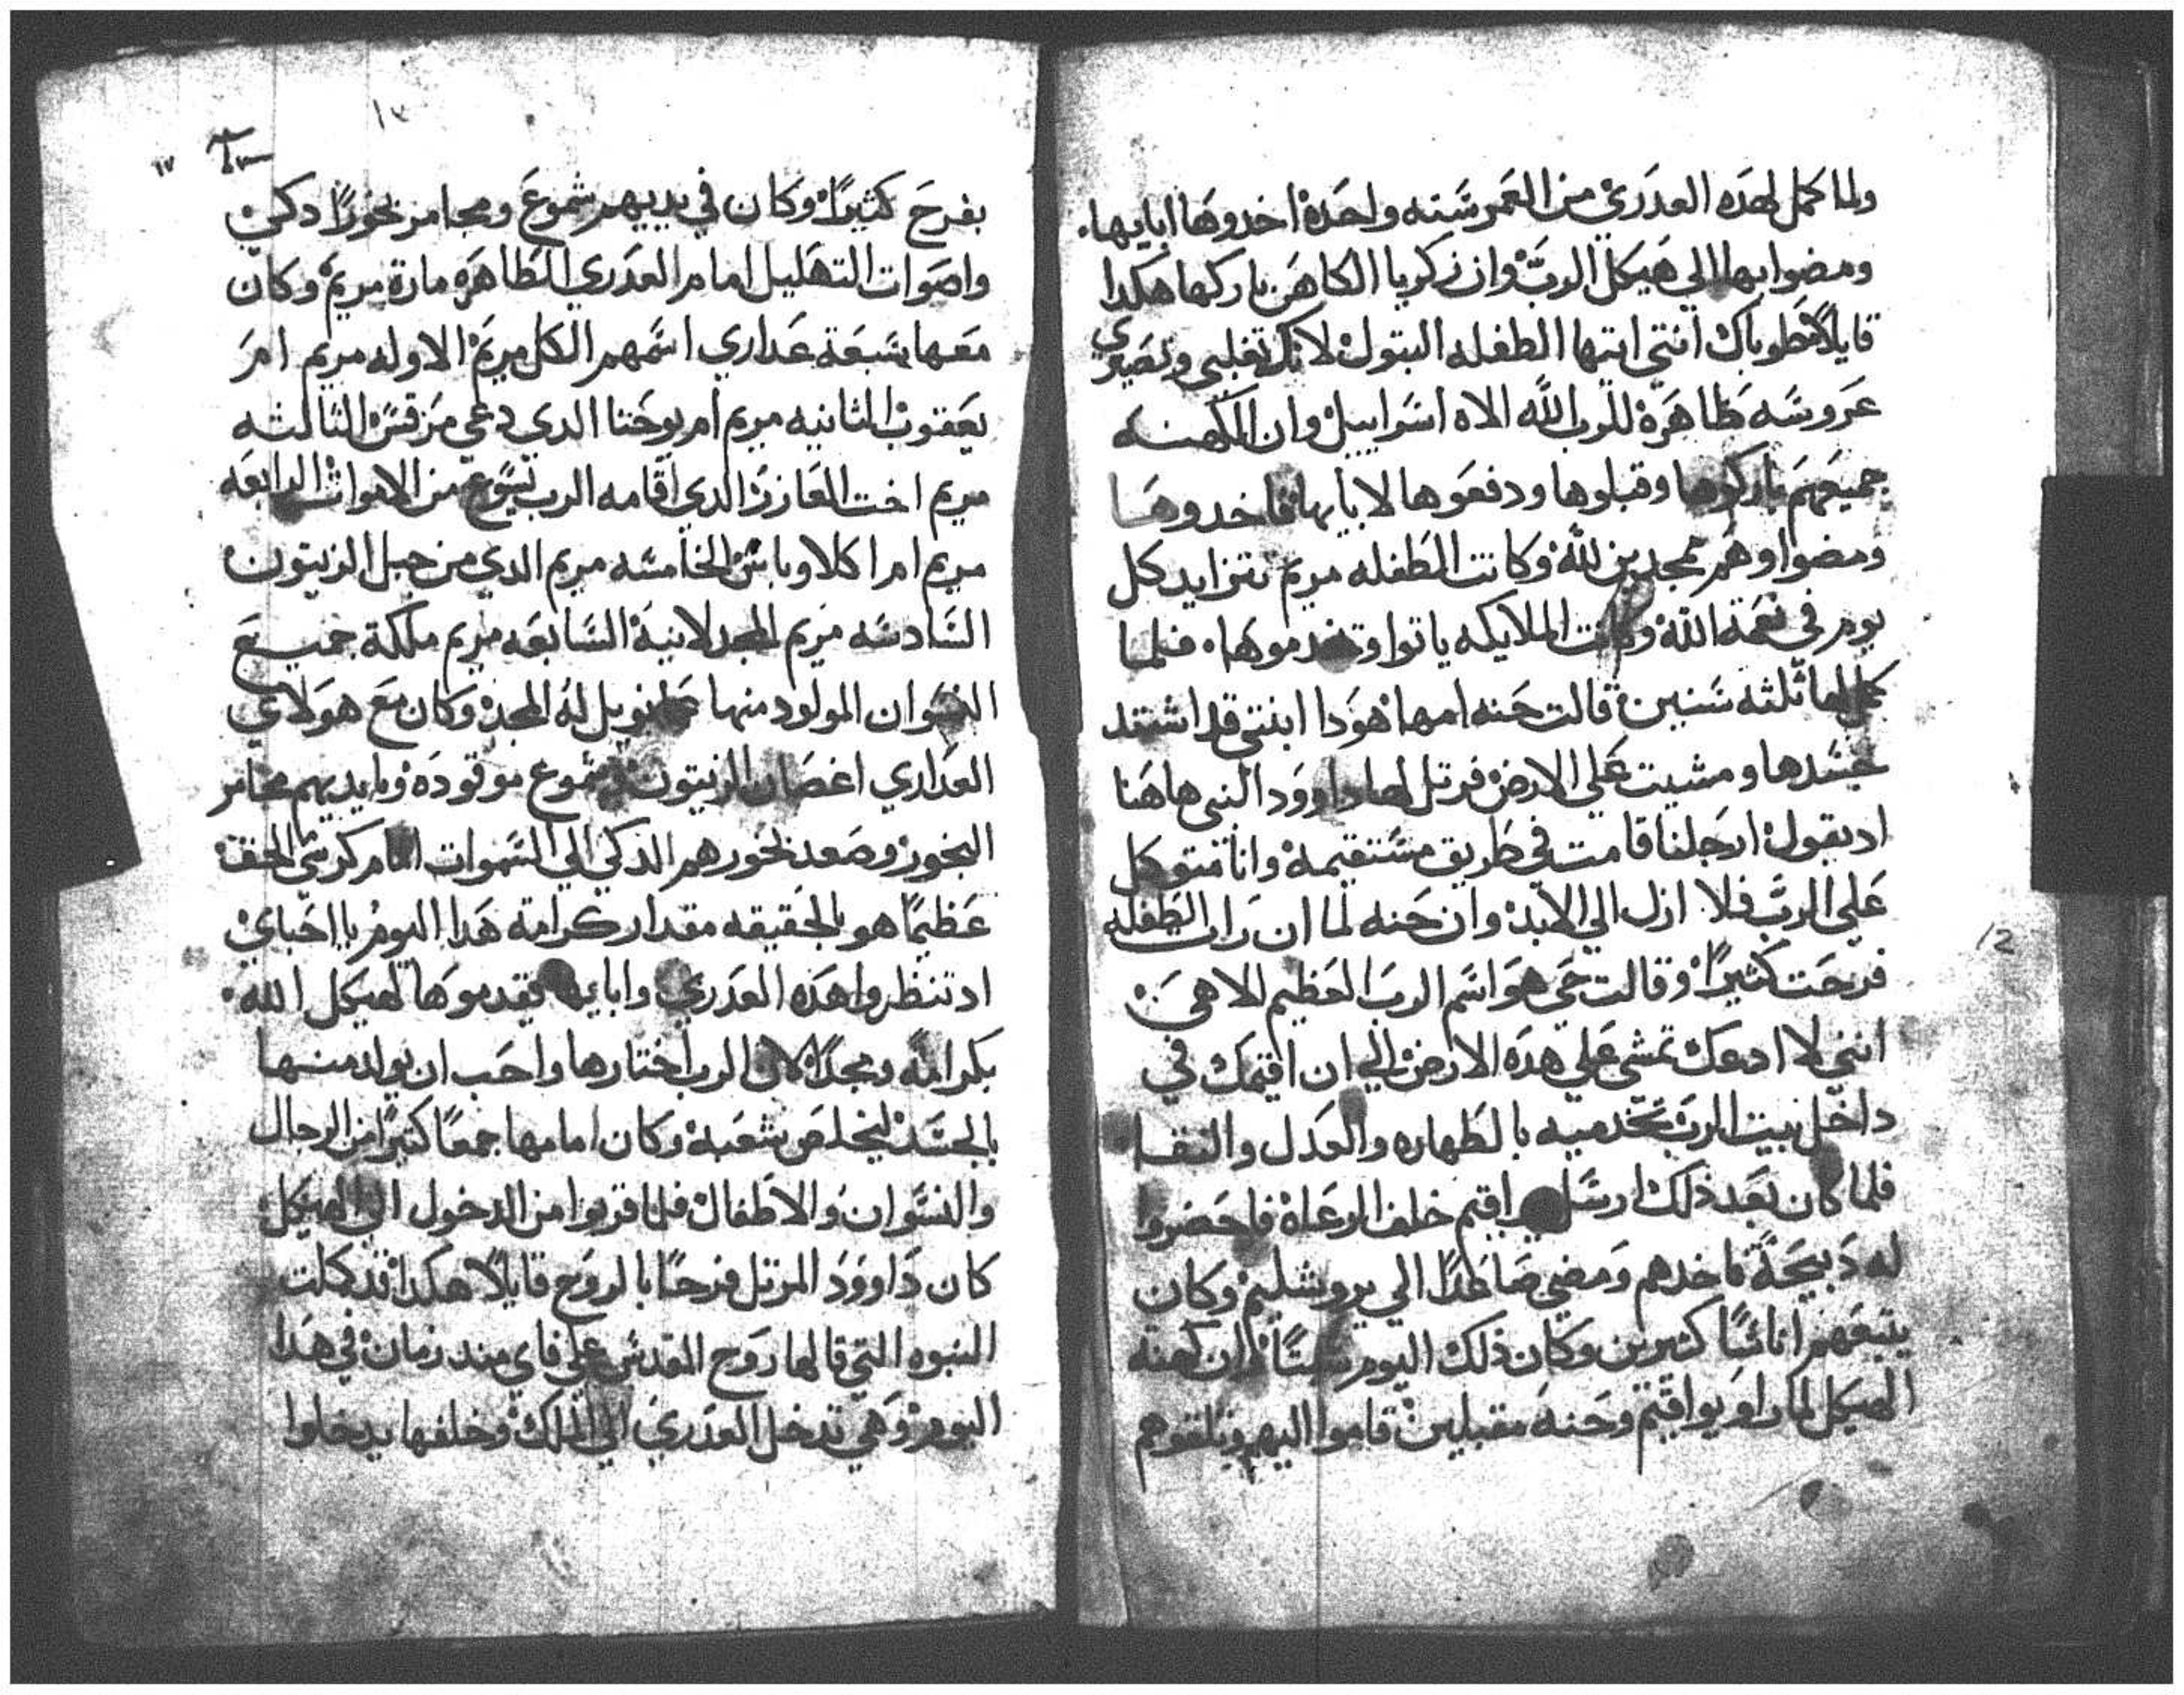 ولما كمل لهده العدري من العمر سنه واحدة اخدوها ابايها.
ومضوا بها الي هيكل الرب وان زكريا الكاهن باركها هكدا
قايلا طوباك انتي ايتها الطفله البتول لانك تغلبي وتصيري
عروسه طاهرة للرب الله الاه اسراييل وان الكهنه
جميعهم باركوها وقبلوها ودفعوها لابايها فاخدوها
ومضوا وهم ممجدين لله وكانت الطفله مريم تتزايد كل
يوم في نعمة الله وكانت الملايكه ياتوا وتخدموها. فلما
كمل لها ثلثه سنين قالت حنه امها هودا ابنتي قد اشتد
جسدها ومشيت علي الارض فرتل لها داوود النبي هاهنا
اد يقول ارجلنا قامت في طريق مستقيمة وانا متوكل
علي الرب فلا ازل الي الابد وان حنه لما ان رات الطفله
فرحت كثيرا وقالت حي هو اسم الرب العظيم الاهي
انني لا ادعك تمشي علي هده الارض الي ان اقيمك في
داخل بيت الرب تخدميه بالطهاره والعدل والنقا
فلما كان بعد ذلك ارسل يواقيم خلف الرعاة فاحضروا
له دبيحة فاخدهم ومضي صاعدا الي يروشليم وكان
يتبعهم اناسا كثيرين وكان ذلك اليوم سبتا وان كهنة
الهيكل لما راو يواقيم وحنه مقبلين قاموا اليهم وتلقوهم
١٣
١٧
بفرح كثيرا وكان في يدييهم شموع ومجامر بخورا دكي
واصوات التهليل امام العدري الطاهره مارة مريم وكان
معها سبعة عداري اسمهم الكل مريم الاوله مريم ام
يعقوب الثانيه مريم ام يوحنا الدي دعي مرقس الثالثه
مريم اخت العازر الدي اقامه الرب يسوع من الاموات الرابعه
مريم امرا كلاوبا الخامسه مريم الدي من جبل الزيتون
السادسه مريم المجدلانية السابعه مريم ملكة جميع
النسوان المولود منها عمانويل له المجد وكان مع هولاي
العداري اغصان الزيتون وشموع موقوده وبايديهم مجامر
البخور وصعد بخورهم الدكي الي السموات امام كرسي الحق
عظيما هو بالحقيقه مقدار كرامة هدا اليوم يا احباي
اد تنظروا هده العدري وابايها تقدموها لهيكل الله.
بكرامة ومجدا لان الرب اختارها واحب ان يولد منها
بالجسد ليخلص شعبة وكان امامها جمعا كثيرا من الرجال
والنسوان والاطفال فلما قربوا من الدخول الي الهيكل
كان داوود المرتل فرحا بالروح قايلا هكدا قد كملت
النبوه التي قالها روح القدس علي فاي مند زمان في هدا
اليوم وهي تدخل العدري الي الملك وخلفها يدخلوا
12